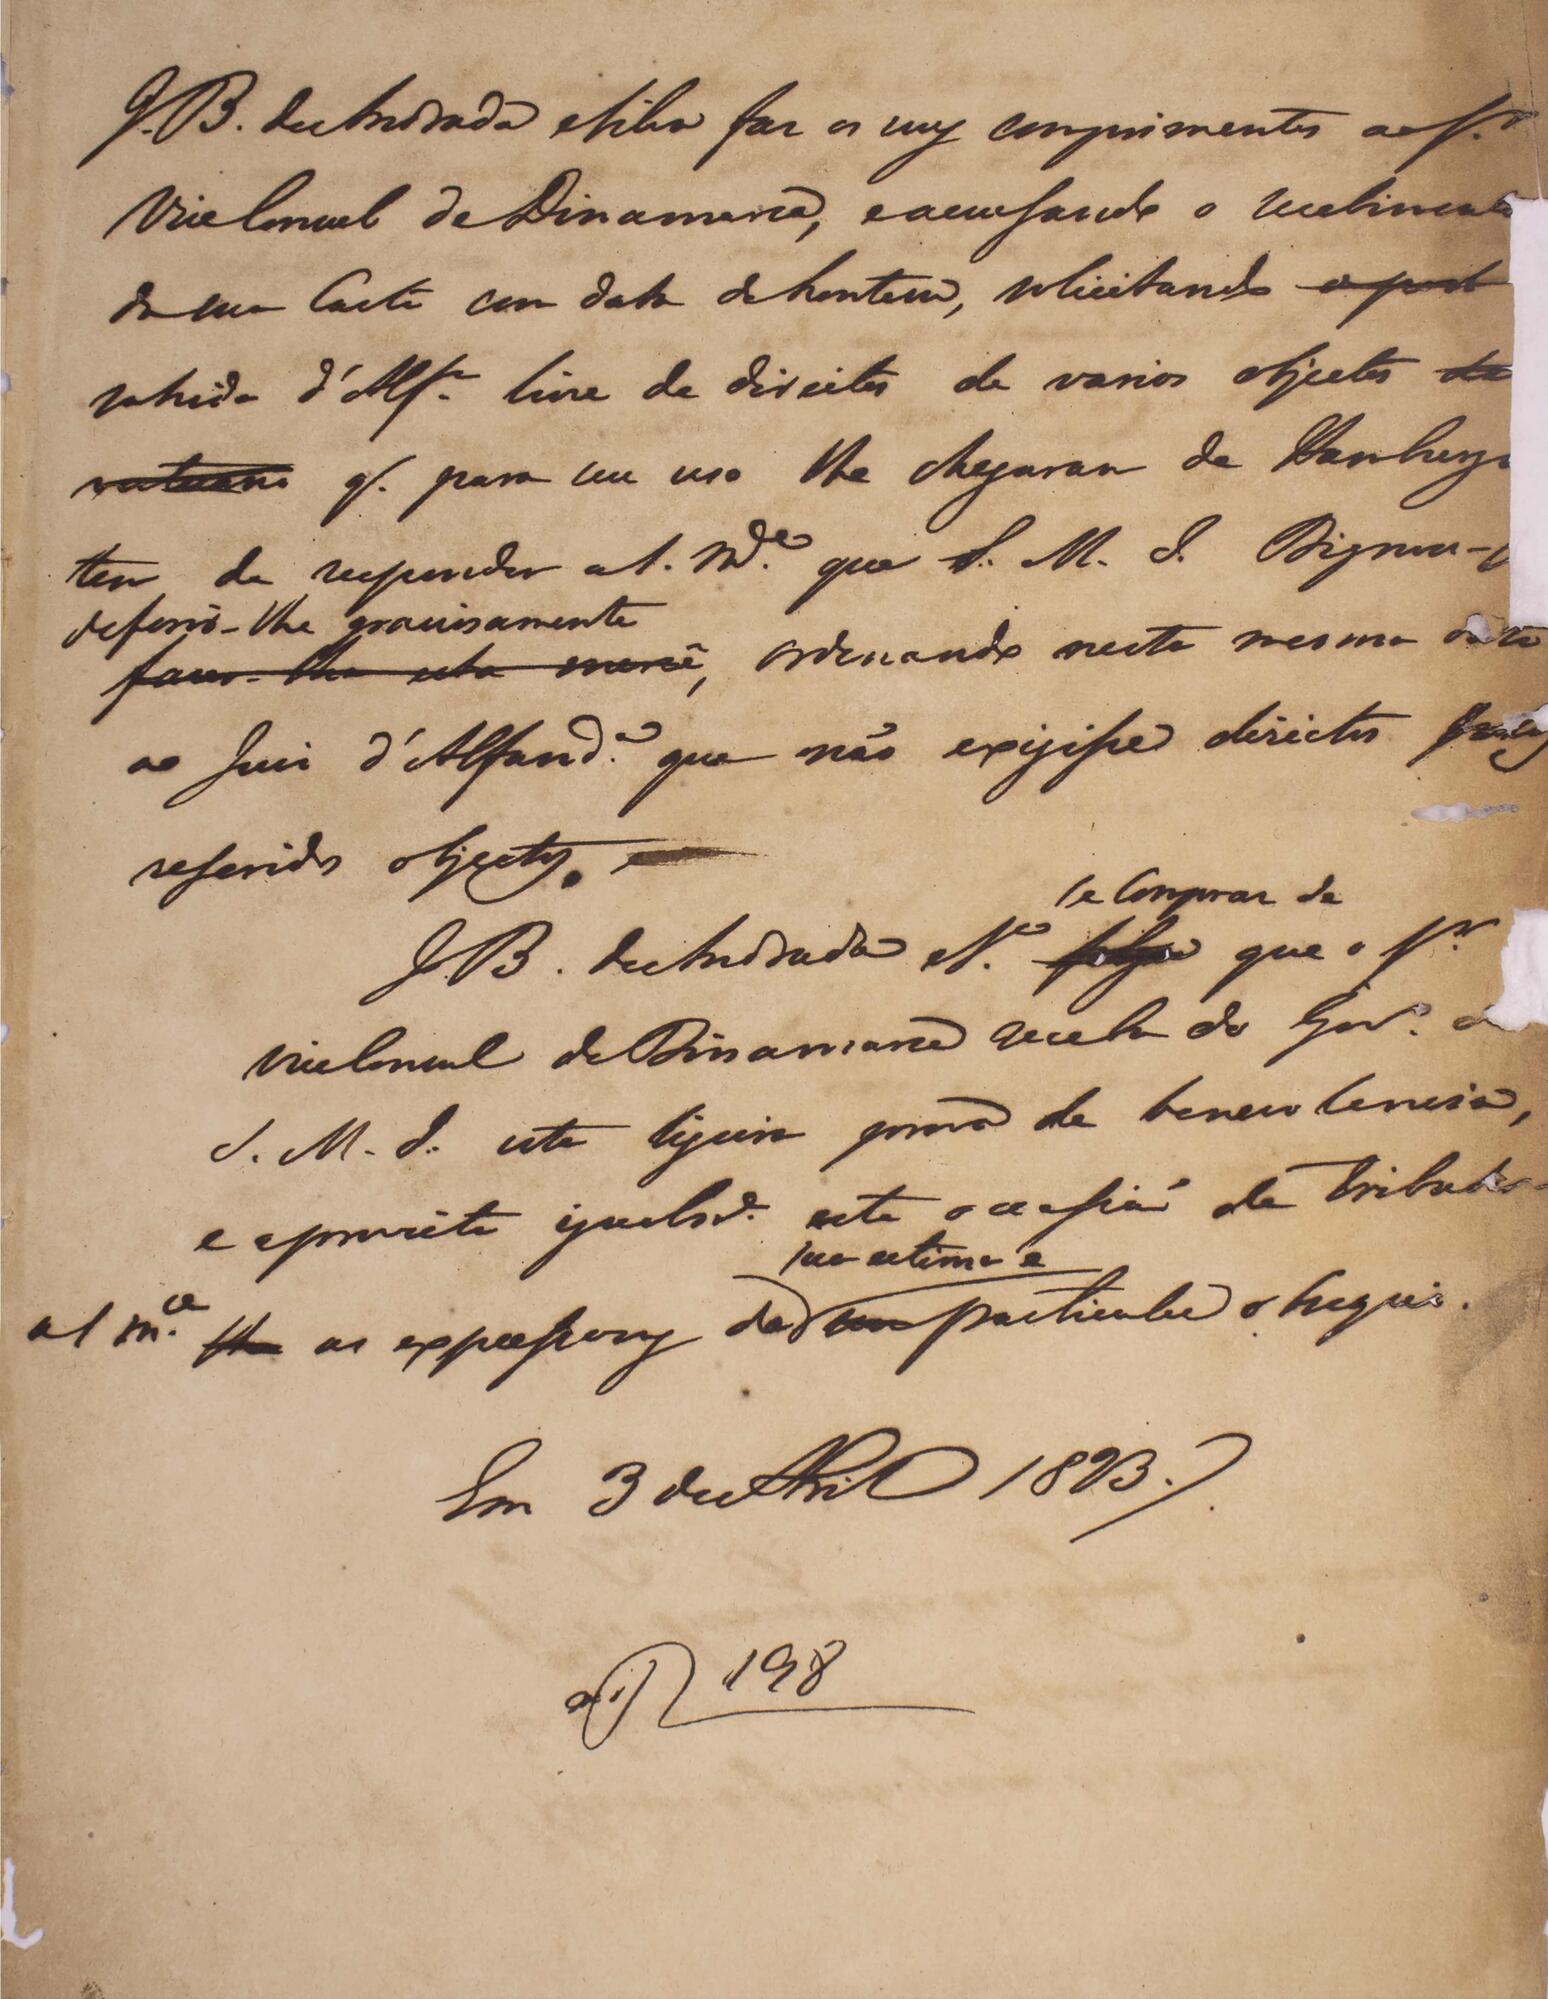 J. B. de Andrada e Silva faz os seus comprimentos ao Sr.
Vice Consul de Dinamarca, e accusando o recebimento
da sua Carta com data de hontem, solicitando
sahida d'Alfa. livre de direitos de varios objectos de
q. para seu uso lhe chegaram de Hamburgo
tem de responder a S. Mce. que S. M. I. Dignou-se
deferir-lhe graciosamente
fazer-lhe esta mercê, ordenando nesta mesma data
ao Juiz d'Alfand.a que não exigisse direitos
referidos objectos.
se Compraz de
J. B. de Andrada e S.a que o Sr.
Vice Consul de Dinamarca receba do Gov.o de
S. M. I. esta ligeira prova de benevolencia,
e aproveita igualm.e esta occasião de tributar
sua estima e
a S. Mce. lhe as expressoens da sua particular obsequio.
Em 3 de Abril 1823.
198